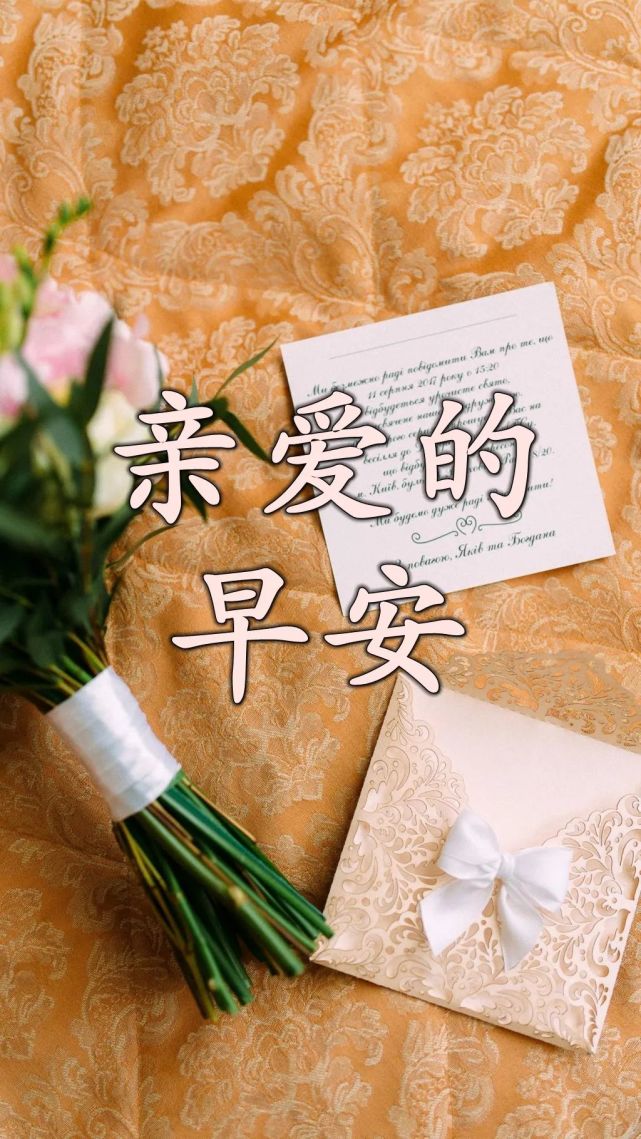 Ми безмежно раді повідомити Вам про те, що
11 серпня 2017 року о 15:20
відбудеться урочисте свято,
亲爱的
весілля до
що відбу 8/20.
м. Київ, бул
Ми будемо дуже раді
повагою, Яків та Богдана
早安